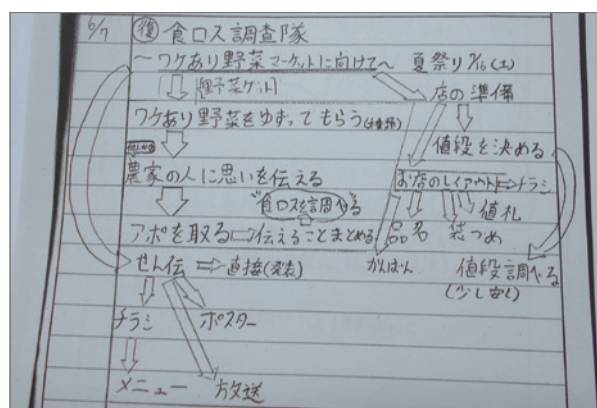 6/7 復 食ロス調査隊
～ワケあり野菜マーケットに向けて～ 夏祭り 7/16(土)
野菜ゲット 店の準備
ワケあり野菜をゆずってもらう
値段を決める
農家の人に思いを伝える お店のレイアウト⇒チラシ
"食ロスを調べる" 値札
アポを取る⇒伝えることまとめる 品名 袋つめ
せん伝⇒直接(発表) かんばん 値段調べる
(少し安く)
チラシ ポスター
メニュー 放送